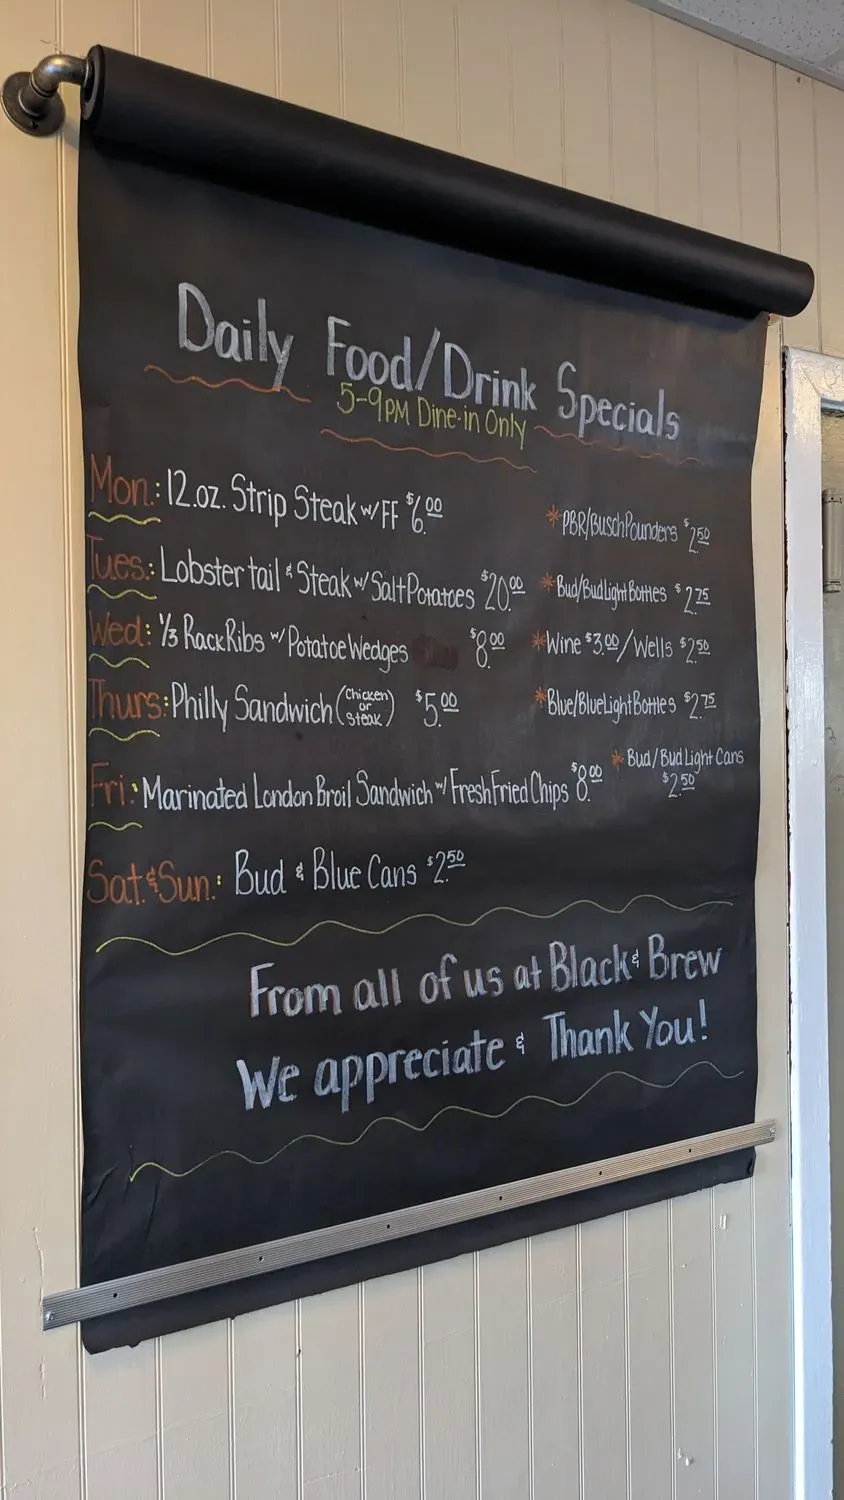 Daily Food/Drink Specials
5-9PM Dine-in Only
Mon.: 12.oz. Strip Steak w/FF $6.00 *PBR/Busch Pounders $2.50
Tues.: Lobster tail & Steak w/ Salt Potatoes $20.00 *Bud/Bud Light Bottles $2.75
Wed: 1/3 Rack Ribs w/ Potatoe Wedges $8.00 *Wine $3.00/Wells $2.50
Thurs: Philly Sandwich (Chicken or Steak) $5.00 *Blue/Blue Light Bottles $2.75
Fri: Marinated London Broil Sandwich w/ Fresh Fried Chips $8.00 *Bud/Bud Light Cans $2.50
Sat. & Sun.: Bud & Blue Cans $2.50
From all of us at Black & Brew
We appreciate & Thank You!